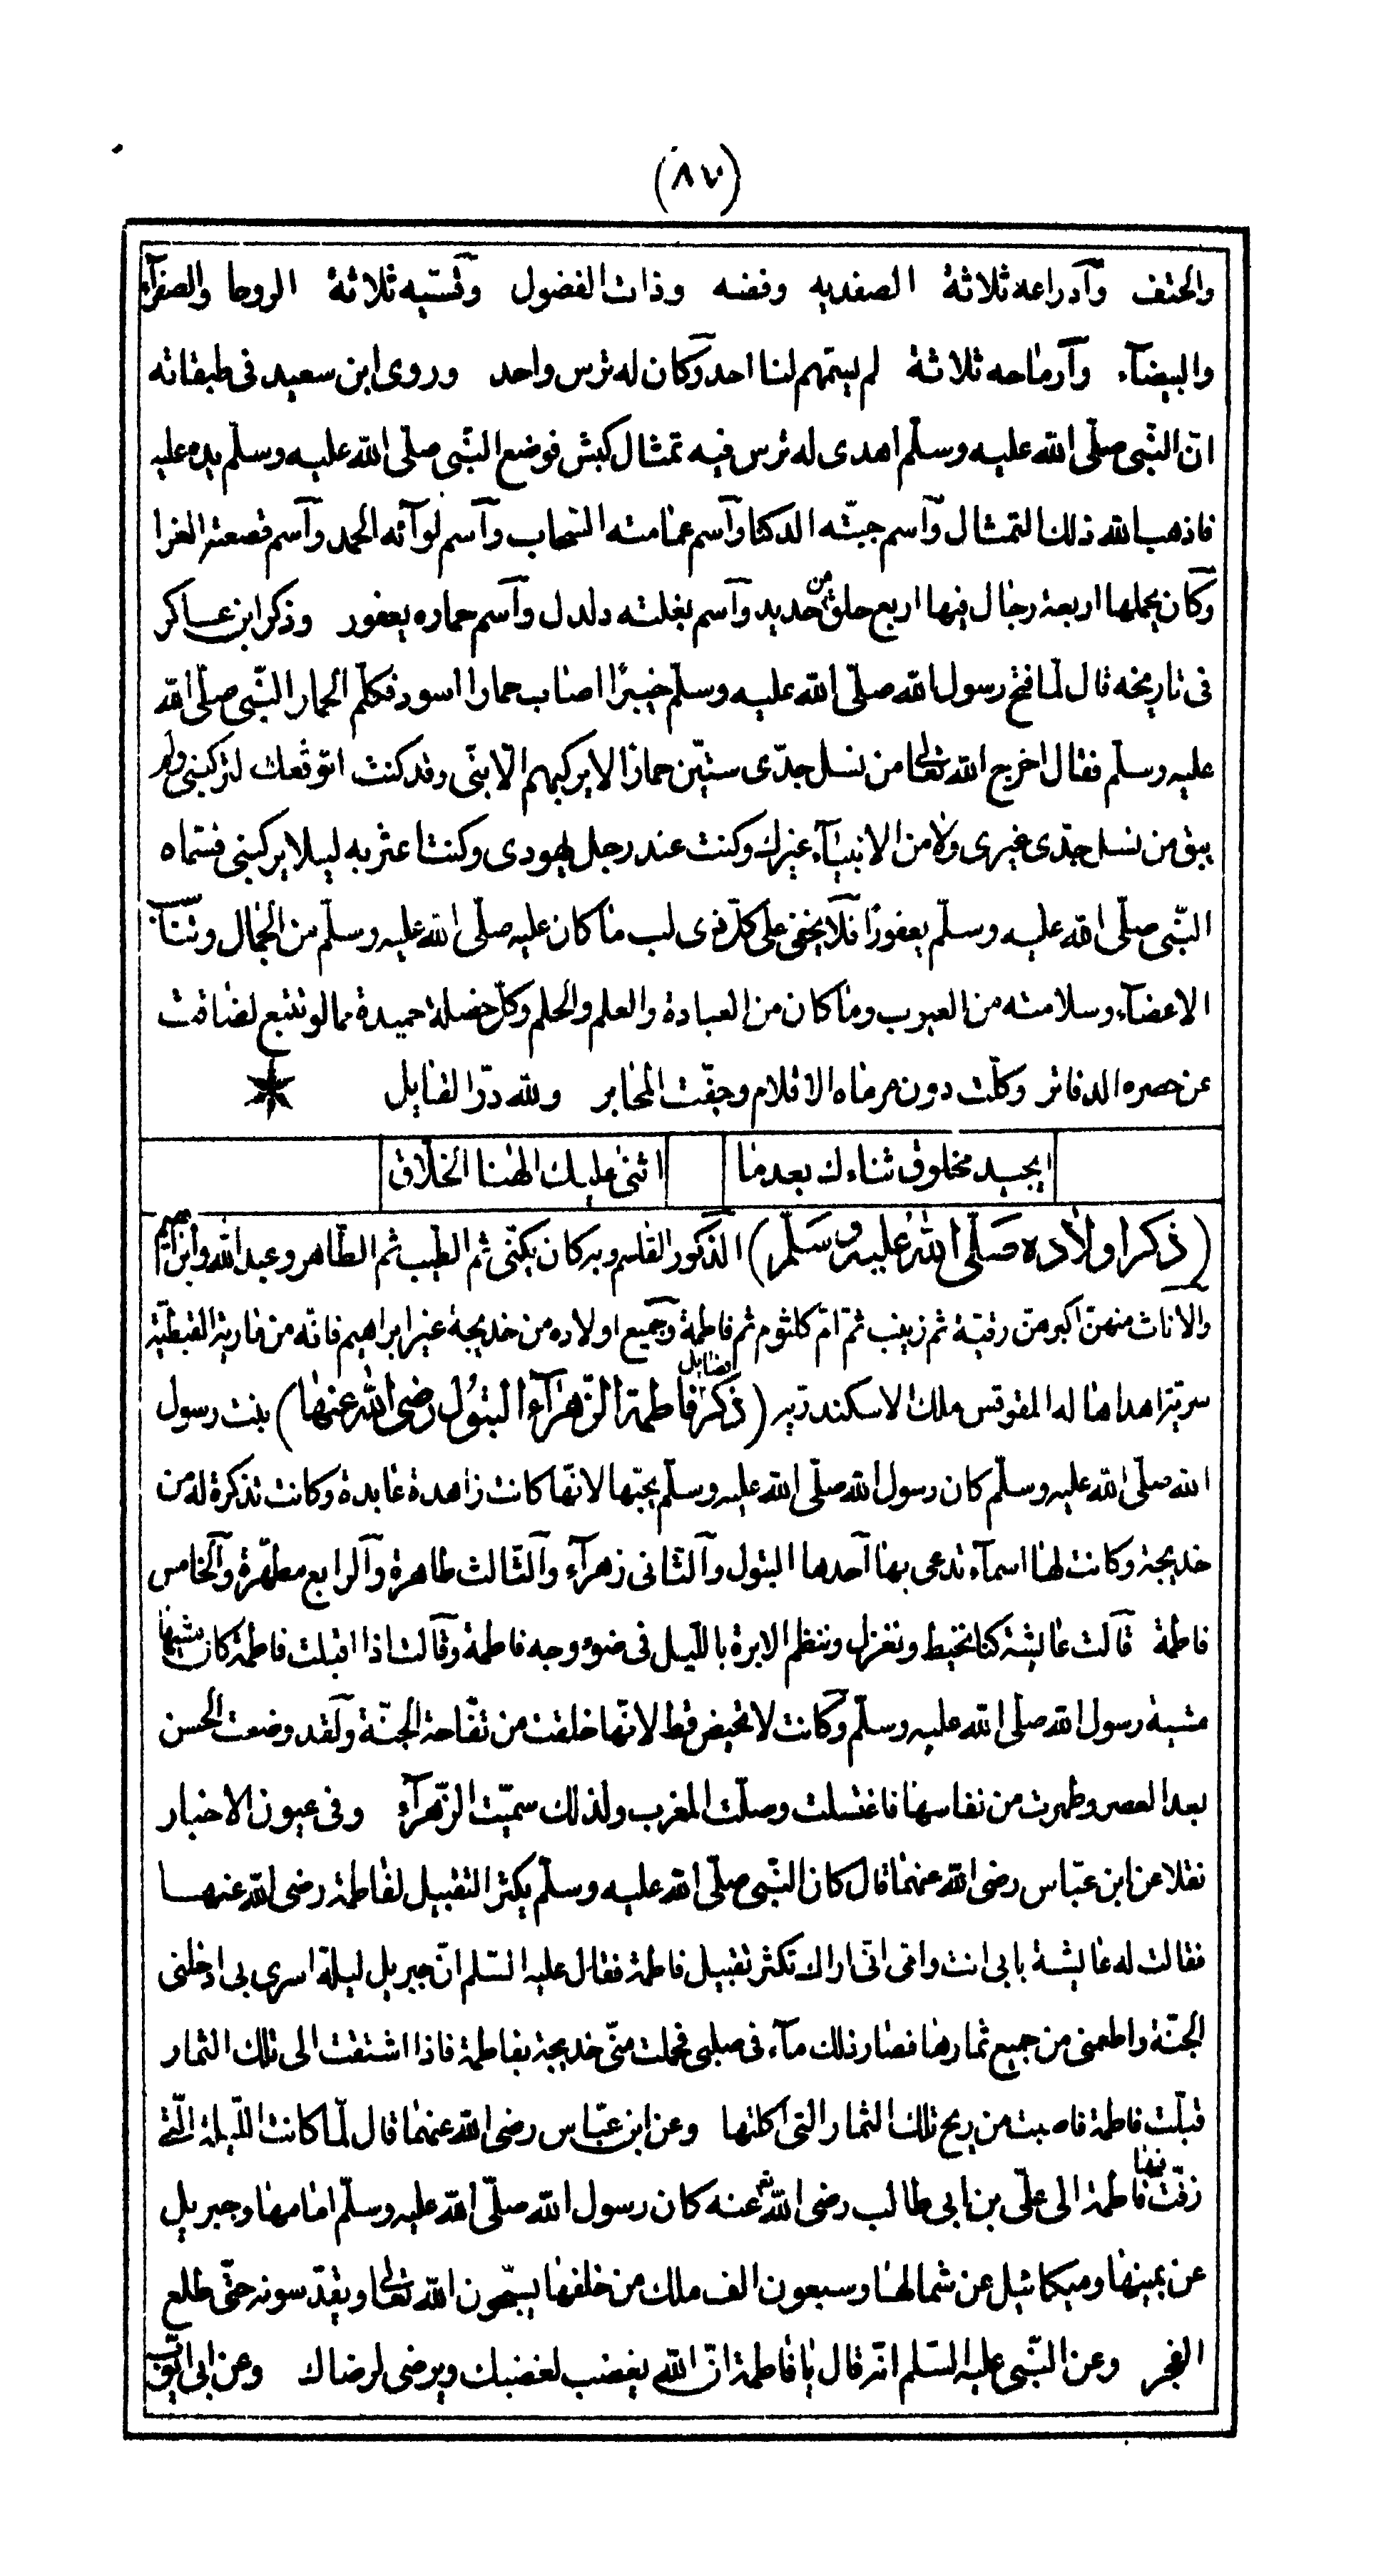 (٨٧)
والحتف وآدراعه ثلاثة الصفديه وفضه وذات الفضول وقسيّه ثلاثة الروحا والصفرآء
والبيضآء وآرماحه ثلاثة لم يسمّهم لنا احد وكان له ترس واحد وروى ابن سعيد فى طبقاته
انّ النّبى صلّى الله عليه وسلّم اهدى له ترس فيه تمثال كبش فوضع النّبى صلّى الله عليه وسلّم يده عليه
فاذهب الله ذلك التمثال وآسم جبّته الدكنا وآسم عمامته السّحاب وآسم لوآئه الحمد وآسم قصعته الغرا
وكان يحملها اربعة رجال فيها اربع حلق من حديد وآسم بغلته دلدل وآسم حماره يعفور وذكر ابن عساكر
فى تاريخه قال لمّا فتح رسول الله صلّى الله عليه وسلّم خيبرًا اصاب حمارا اسود فكلّم الحمار النّبى صلّى الله
عليه وسلّم فقال اخرج الله تعالى من نسل جدّى ستّين حمارًا لا يركبهم الّا نبىّ وقد كنت اتوقّعك لتركبنى ولم
يبق من نسل جدّى غيرى ولا من الانبيآء غيرك وكنت عند رجل يهودى وكنت اعثر به ليلا يركبنى فسمّاه
النّبى صلّى الله عليه وسلّم يعفورًا فلا يخفى على كلّ ذى لب ما كان عليه صلّى الله عليه وسلّم من الجمال وتناسب
الاعضآء وسلامته من العيوب وما كان من العبادة والعلم والحلم وكلّ خصلة حميدة مما لو تتبع لضاقت
عن حصره الدفاتر وكلّت دون مرماه الاقلام وجفّت المحابر ولله درّ القايل
ايجيد مخلوق ثناءك بعد ما اثنى عليك الهنا الخلّاق
(ذكر اولاده صلّى الله عليه وسلّم) الذكور القاسم وبه كان يكنّى ثم الطيب ثم الطّاهر وعبد الله وابراهيم
والاناث منهنّ اكبرهنّ رقيّة ثم زينب ثمّ امّ كلثوم ثم فاطمة وجميع اولاده من خديجة غير ابراهيم فانّه من مارية القبطيّة
سريّة اهداها له المقوقس ملك الاسكندريّه (ذكر فضايل فاطمة الزّهرآء البتول رضى الله عنها) بنت رسول
الله صلّى الله عليه وسلّم كان رسول الله صلّى الله عليه وسلّم يحبّها لانّها كانت زاهدة عابدة وكانت تذكرة له من
خديجة وكانت لها اسمآء تدعى بها آحدها البتول وآلثّانى زهرآء وآلثّالث طاهرة وآلرابع مطهّرة وآلخامس
فاطمة قآلت عايشة كنا نخيط ونغزل وننظم الابرة بالليل فى ضوء وجه فاطمة وقآلت اذا اقبلت فاطمة كان مشيها
مشية رسول الله صلى الله عليه وسلّم وكانت لا تحيض قط لانّها خلقت من تفّاحة الجنّة ولقد وضعت الحسن
بعد العصر وطهرت من نفاسها فاغتسلت وصلّت المغرب ولذلك سمّيت الزّهرآء وفى عيون الاخبار
نقلا عن ابن عبّاس رضى الله عنهما قال كان النّبى صلّى الله عليه وسلّم يكثر التقبيل لفاطمة رضى الله عنها
فقالت له عايشة بابى انت وامّى انّى اراك تكثر تقبيل فاطمة فقال عليه السّلم انّ جبريل ليلة اسرى بى ادخلنى
الجنّة واطعمنى من جميع ثمارها فصار ذلك مآء فى صلبى فحملت منّى خديجة بفاطمة فاذا اشتقت الى تلك الثمار
قبلّت فاطمة فاصبت من ريح تلك الثمار التى اكلتها وعن ابن عبّاس رضى الله عنهما قال لمّا كانت اللّيلة الّتى
زفّت فيها فاطمة الى علّى بن ابى طالب رضى الله عنه كان رسول الله صلّى الله عليه وسلّم امامها وجبريل
عن يمينها وميكائيل عن شمالها وسبعون الف ملك من خلفها يسبّحون الله تعالى ويقدّسونه حتّى طلع
الفجر وعن النّبى عليه السّلم انّه قال يا فاطمة انّ الله يغضب لغضبك ويرضى لرضاك وعن ابى ايّوب